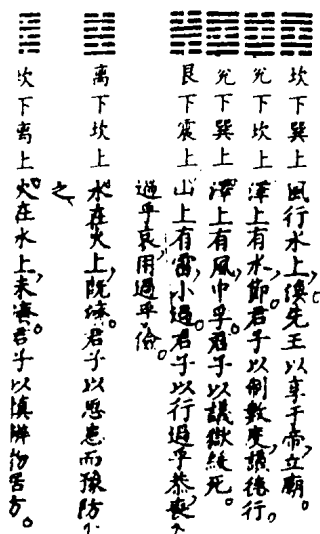 坎下巽上 風行水上,渙。先王以享于帝,立廟。
兌下坎上 澤上有水,節。君子以制數度,議德行。
兌下巽上 澤上有風,中孚。君子以議獄緩死。
艮下震上 山上有雷,小過。君子以行過乎恭,喪
過乎哀,用過乎儉。
离下坎上 水在火上,既濟。君子以思患而豫防
之
坎下离上 火在水上,未濟。君子以慎辨物居方。